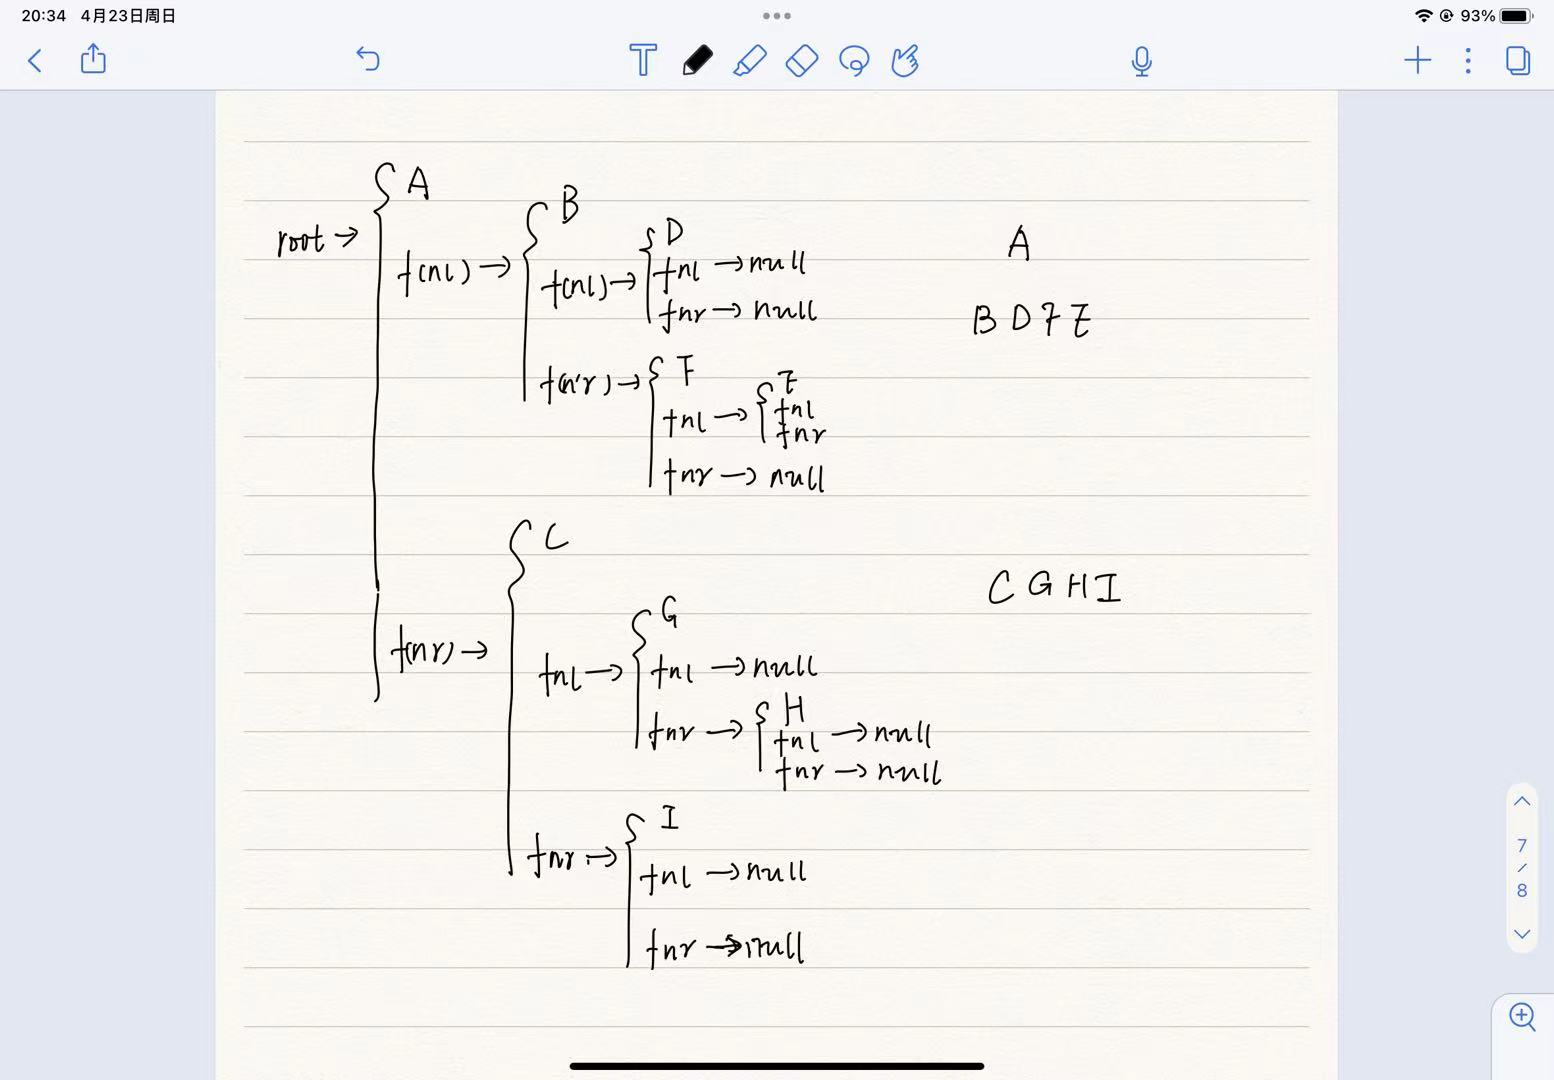 20:34 4月23日周日
93%
T
{ A
root →
f(nl) → { B
f(nl) → { D
fnl → null
fnr → null
f(nr) → { F
fnl → { E
fnl
fnr
fnr → null
f(nr) → { C
fnl → { G
fnl → null
fnr → { H
fnl → null
fnr → null
fnr → { I
fnl → null
fnr → null
A
B D F E
C G H I
7
/
8